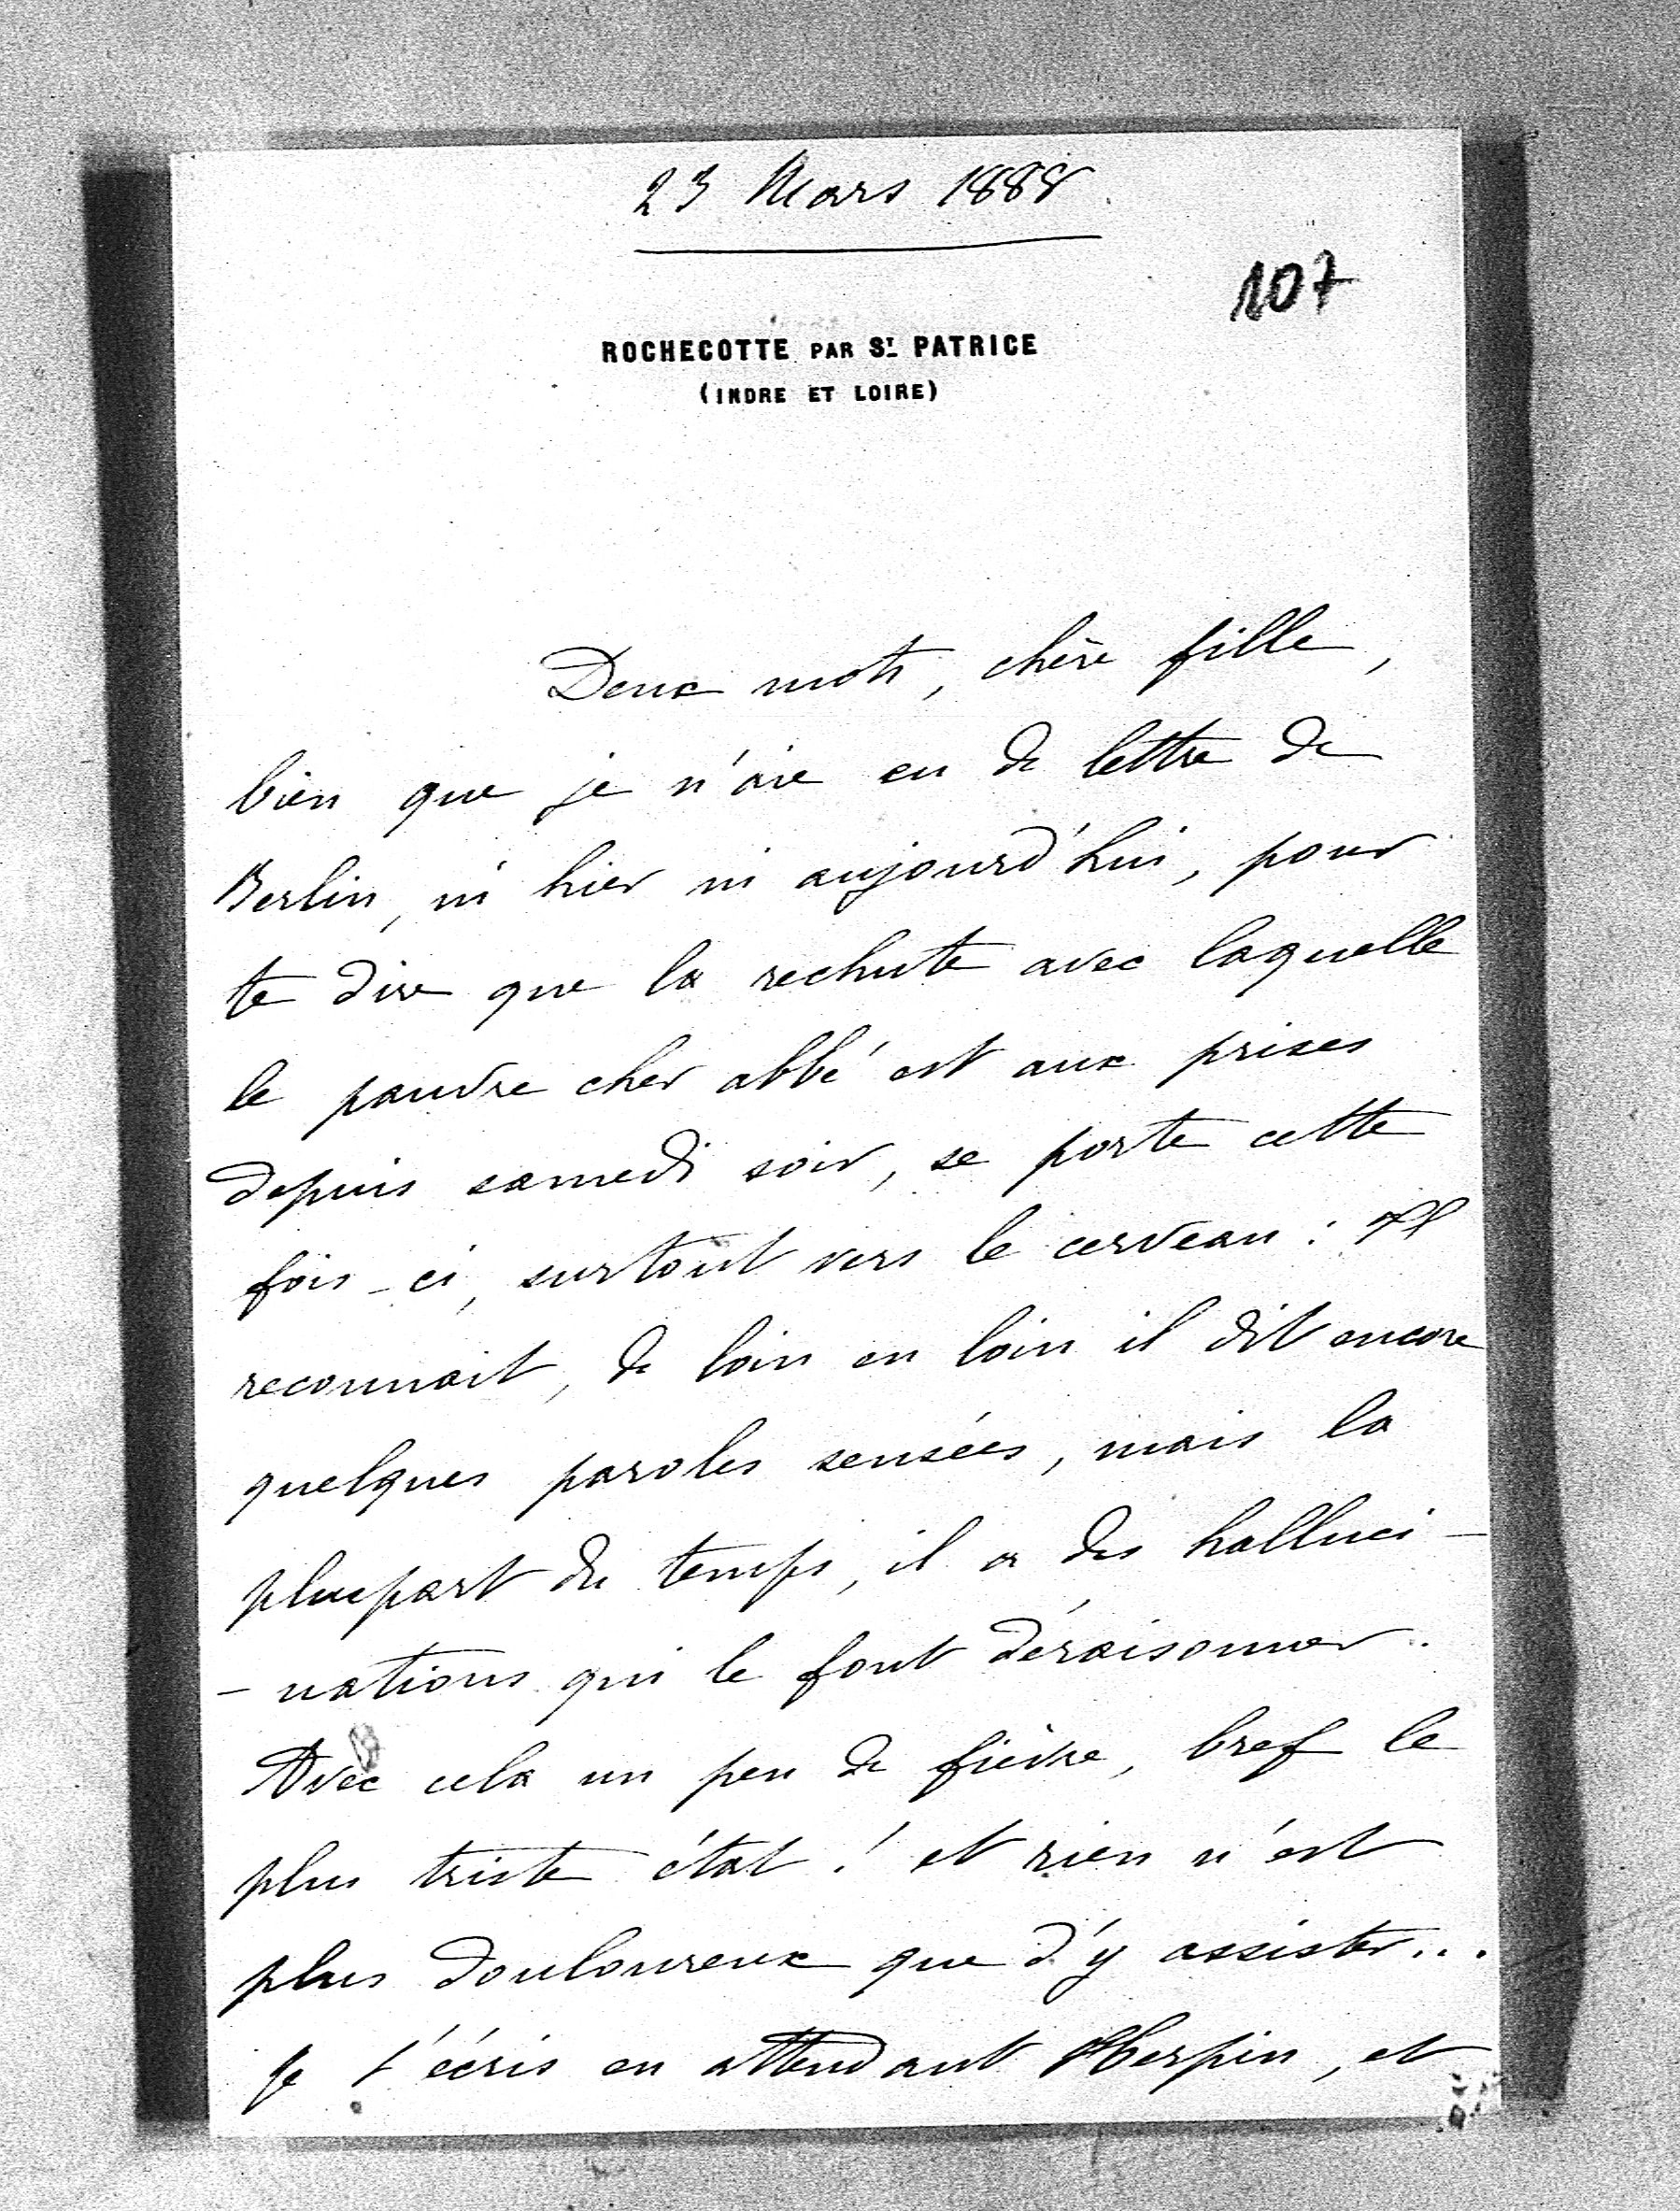 23 Mars 1888
107
ROCHECOTTE PAR St PATRICE
(INDRE ET LOIRE)
Deux mots, chère fille,
bien que je n'aie eu de lettre de
Berlin, ni hier ni aujourd'hui, pour
te dire que la rechute avec laquelle
le pauvre cher abbé est aux prises
depuis samedi soir, se porte cette
fois-ci, surtout vers le cerveau : Il
reconnait, de loin en loin il dit encore
quelques paroles sensées, mais la
pluspart du temps, il a des halluci-
-nations qui le font déraisonner..
Avec cela un peu de fièvre, bref le
plus triste état ! et rien n'est
plus douloureux que d'y assister...
Je t'écris en attendant Herpin, et